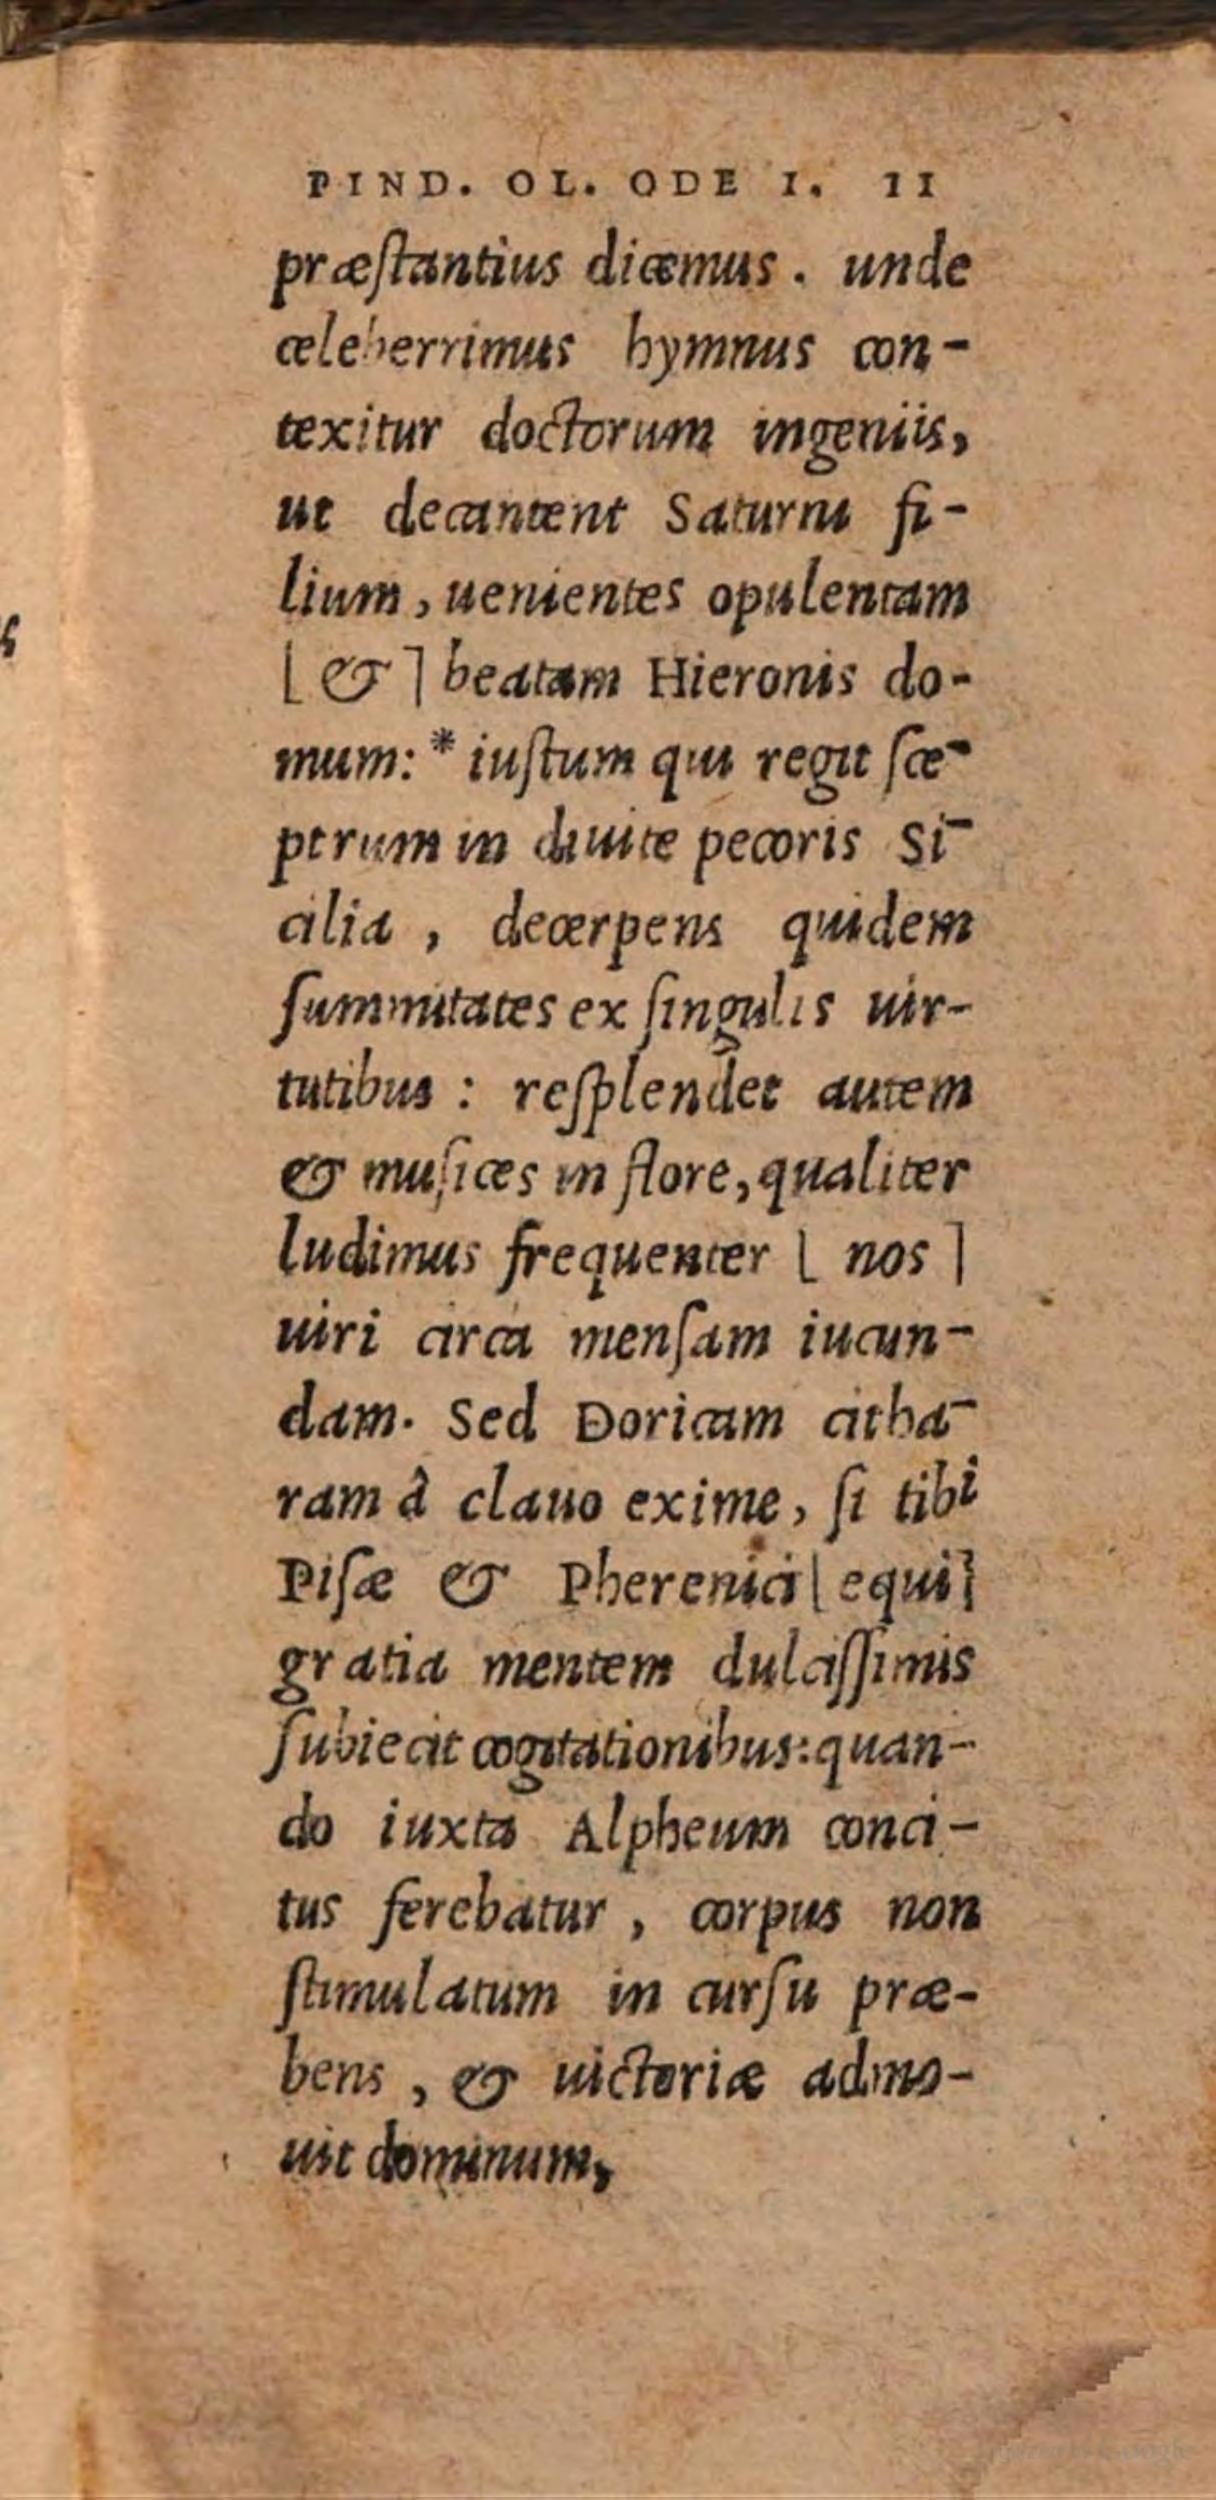 PIND. OL. ODE I. 11
præſtantius dicemus. unde
celeberrimus hymnus con-
texitur doctorum ingeniis,
ut decantent Saturni fi-
lium, uenientes opulentam
[&] beatam Hieronis do-
mum: * iuſtum qui regit ſce-
ptrum in diuite pecoris Si-
cilia, decerpens quidem
ſummitates ex ſingulis uir-
tutibus: reſplendet autem
& muſices in flore, qualiter
ludimus frequenter [nos]
uiri circa menſam iucun-
dam. Sed Doricam citha-
ram â clauo exime, ſi tibi
Piſæ & Pherenici [equi]
gratia mentem dulciſſimis
ſubiecit cogitationibus: quan-
do iuxta Alpheum conci-
tus ferebatur, corpus non
ſtimulatum in curſu præ-
bens, & uictoriæ admo-
uit dominum,